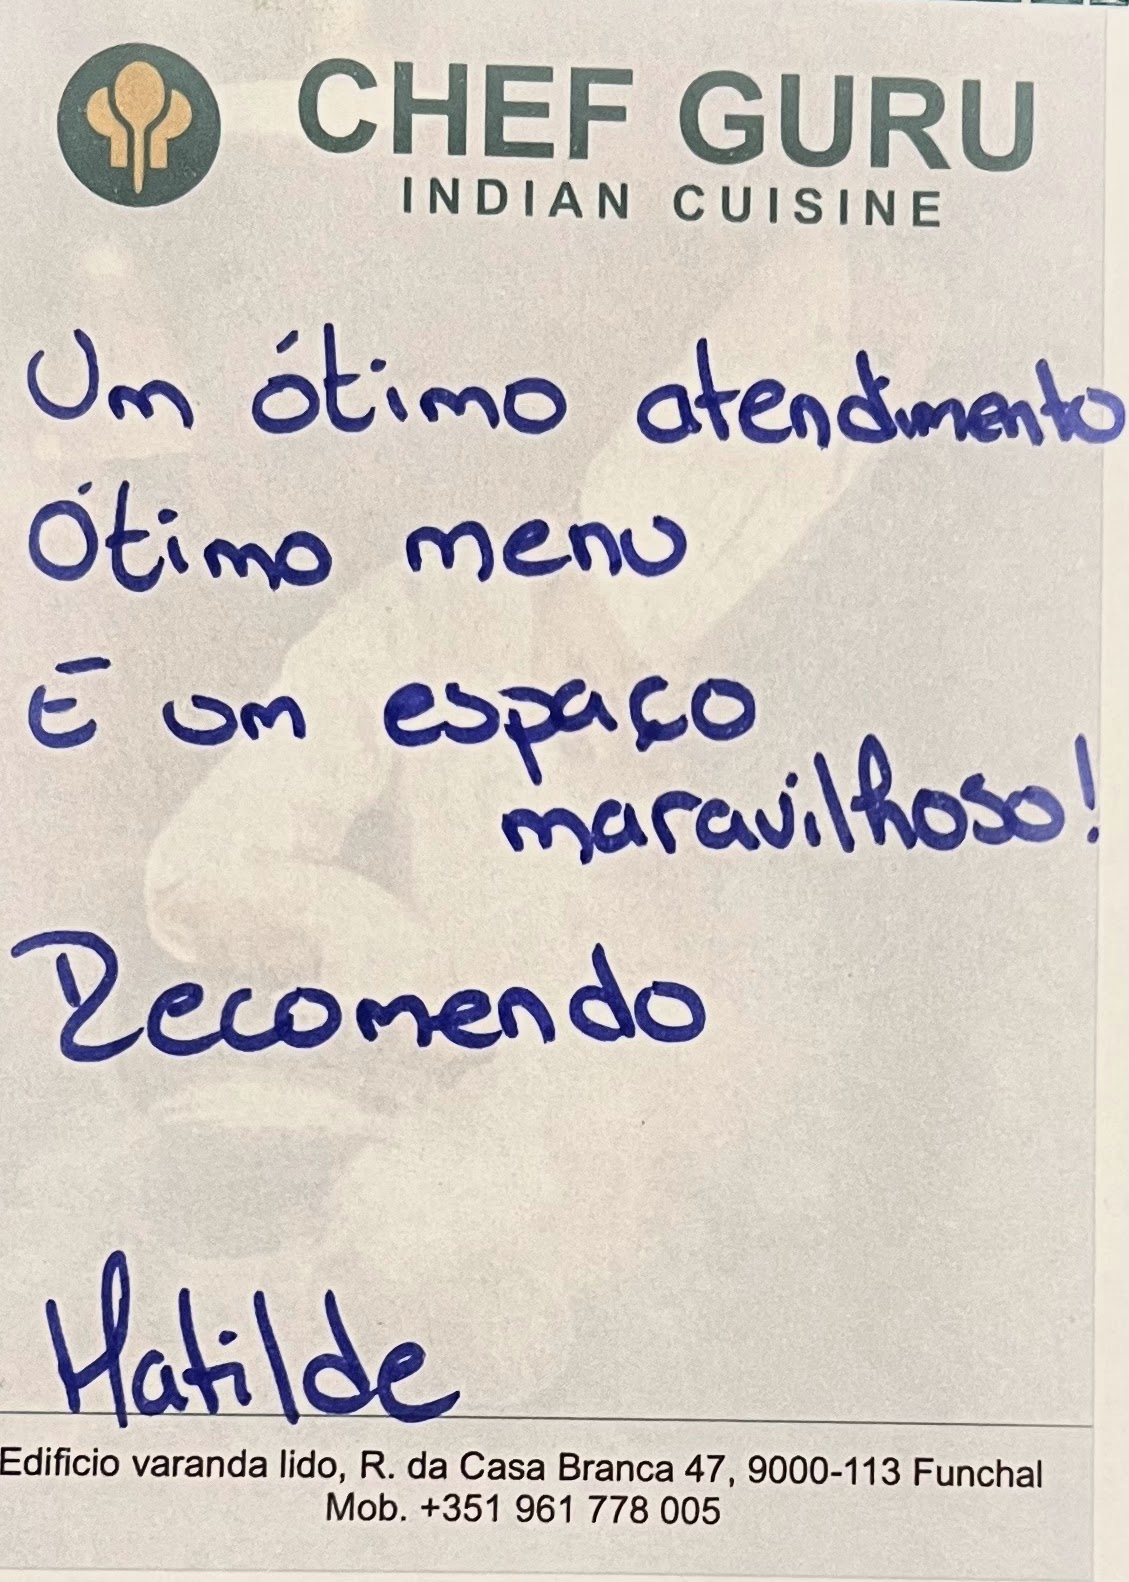 CHEF GURU
INDIAN CUISINE
Um ótimo atendimento
Ótimo menu
É um espaço
maravilhoso!
Recomendo
Matilde
Edificio varanda lido, R. da Casa Branca 47, 9000-113 Funchal
Mob. +351 961 778 005